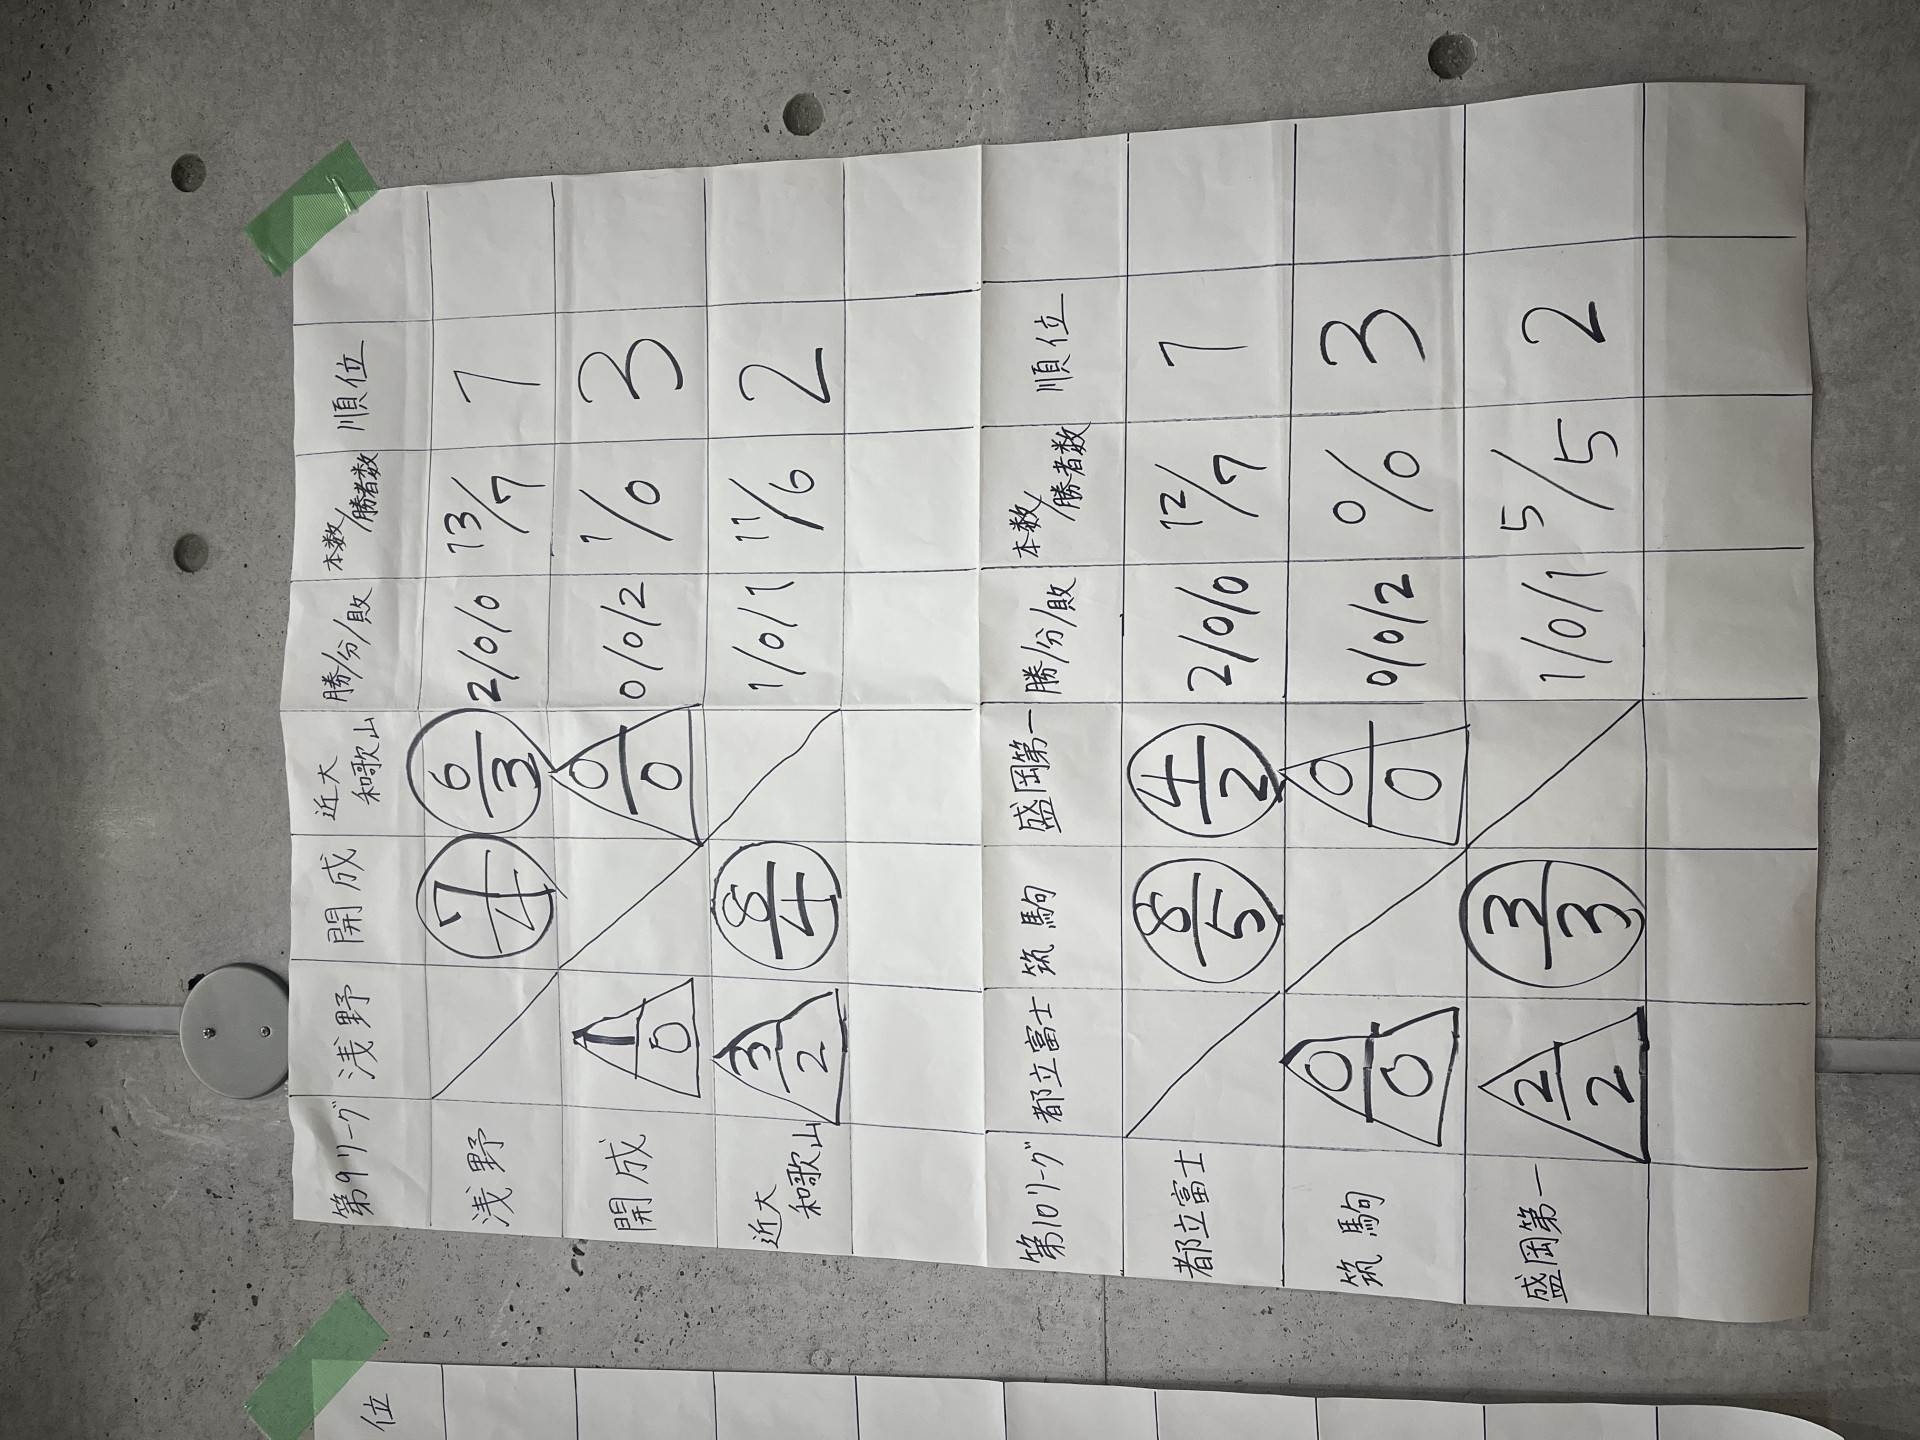 第9リーグ 浅野 開成 近大和歌山 勝/分/敗 本数/勝者数 順位
浅野 7/4 6/3 2/0/0 13/7 1
開成 1/0 0/0 0/0/2 1/0 3
近大和歌山 3/2 8/4 1/0/1 11/6 2
第10リーグ 都立富士 筑駒 盛岡第一 勝/分/敗 本数/勝者数 順位
都立富士 8/5 4/2 2/0/0 12/7 1
筑駒 0/0 0/0 0/0/2 0/0 3
盛岡第一 2/2 3/3 1/0/1 5/5 2
位